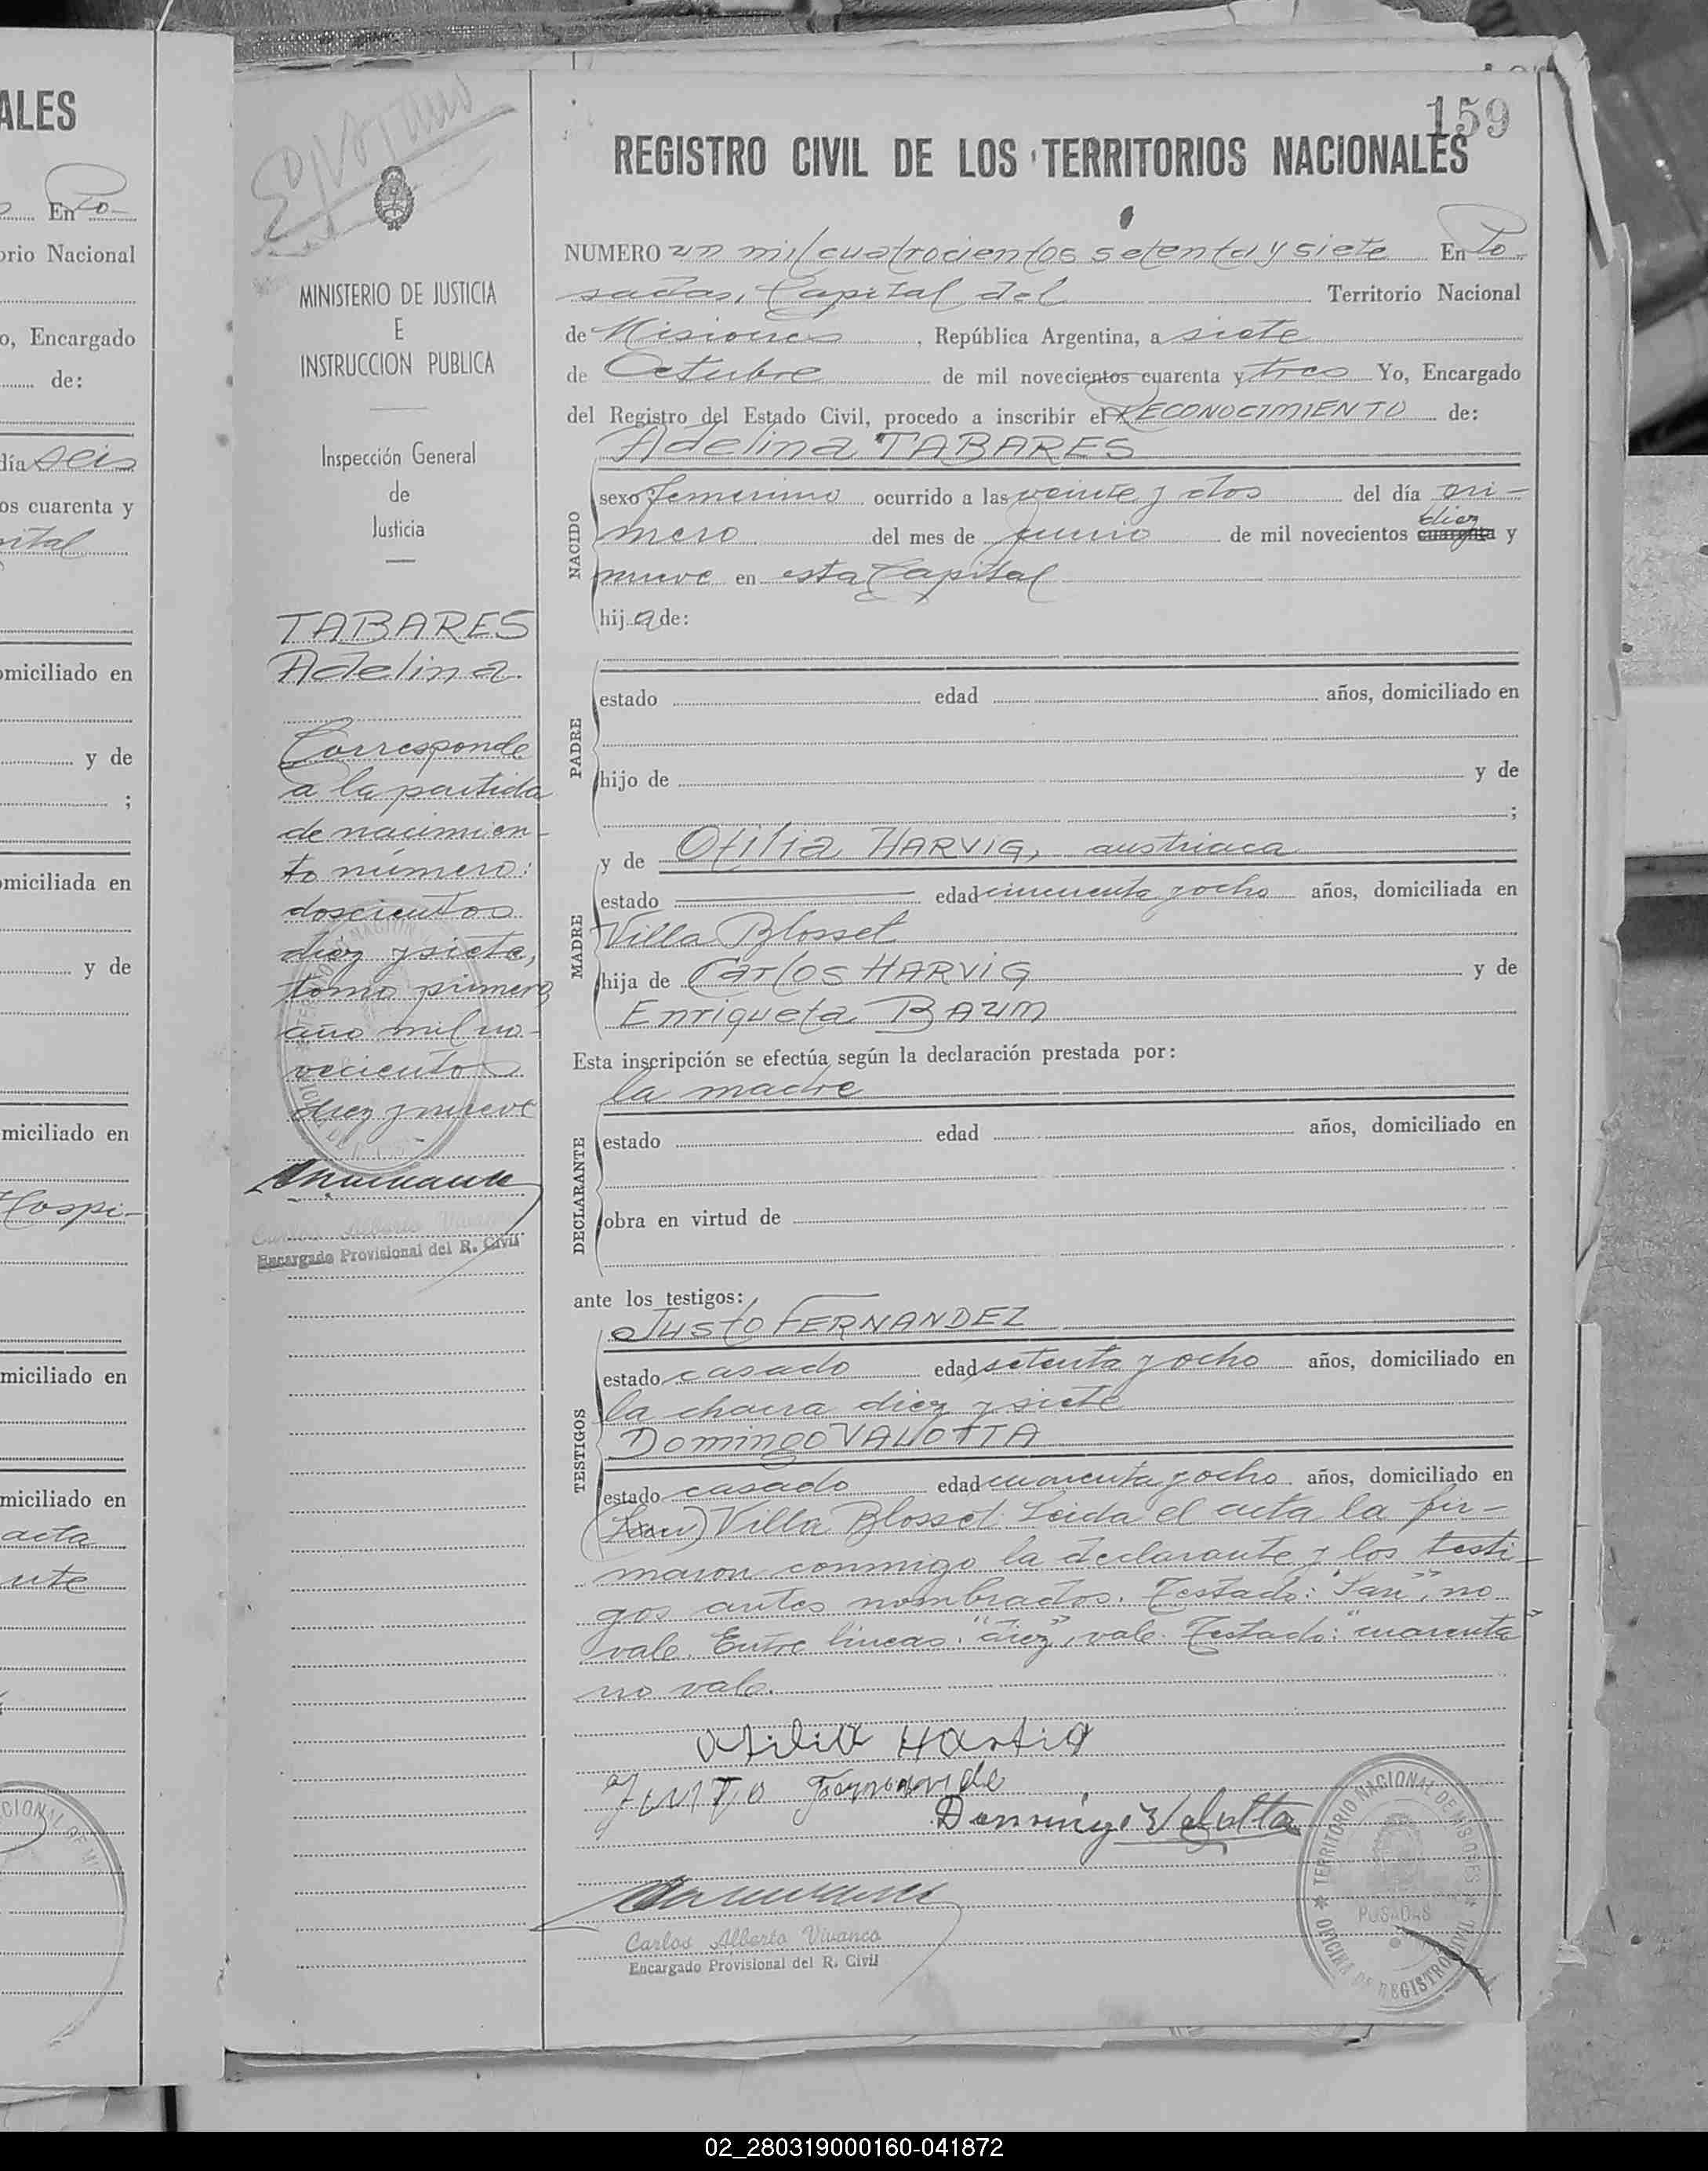 ALES
En Po-
orio Nacional
o, Encargado
de:
día seis
os cuarenta y
pital
omiciliado en
y de
;
omiciliada en
y de
miciliado en
Hospi-
miciliado en
miciliado en
acta
159
REGISTRO CIVIL DE LOS TERRITORIOS NACIONALES
MINISTERIO DE JUSTICIA
E
INSTRUCCION PUBLICA
Inspección General
de
Justicia
TABARES
Adelina.
Corresponde
a la partida
de nacimien-
to número:
doscientos
diez y siete,
tomo primero
año mil no-
vecientos
diez y nueve
Carlos Alberto Vivanco
Encargado Provisional del R. Civil
NUMERO un mil cuatrocientos setenta y siete En Po-
sadas, Capital del Territorio Nacional
de Misiones, República Argentina, a siete
de Octubre de mil novecientos cuarenta y tres Yo, Encargado
del Registro del Estado Civil, procedo a inscribir el RECONOCIMIENTO de:
Adelina TABARES
NACIDO
sexo femenino ocurrido a las veinte y dos del día pri-
diez
mero del mes de junio de mil novecientos cuarenta y
nueve en esta Capital
hija de:
PADRE
estado edad años, domiciliado en
hijo de y de
;
y de Otilia HARVIG, austriaca
MADRE
estado edad cincuenta y ocho años, domiciliada en
Villa Blosset
hija de Carlos HARVIG y de
Enriqueta BAUM
Esta inscripción se efectúa según la declaración prestada por:
la madre
DECLARANTE
estado edad años, domiciliado en
obra en virtud de
ante los testigos:
Justo FERNANDEZ
TESTIGOS
estado casado edad setenta y ocho años, domiciliado en
la chacra diez y siete
Domingo VALOTTA
estado casado edad cuarenta y ocho años, domiciliado en
(San) Villa Blosset. Leida el acta la fir-
maron conmigo la declarante y los testi-
gos antes nombrados. Testado: "San", no
vale. Entre lineas: "diez", vale. Testado: "cuarenta"
no vale.
Otilia Hartig
Justo Fernande
Domingo Valotta
Carlos Alberto Vivanco
Encargado Provisional del R. Civil
TERRITORIO NACIONAL DE MISIONES
POSADAS
OFICINA DE REGISTRO CIVIL
02_280319000160-041872